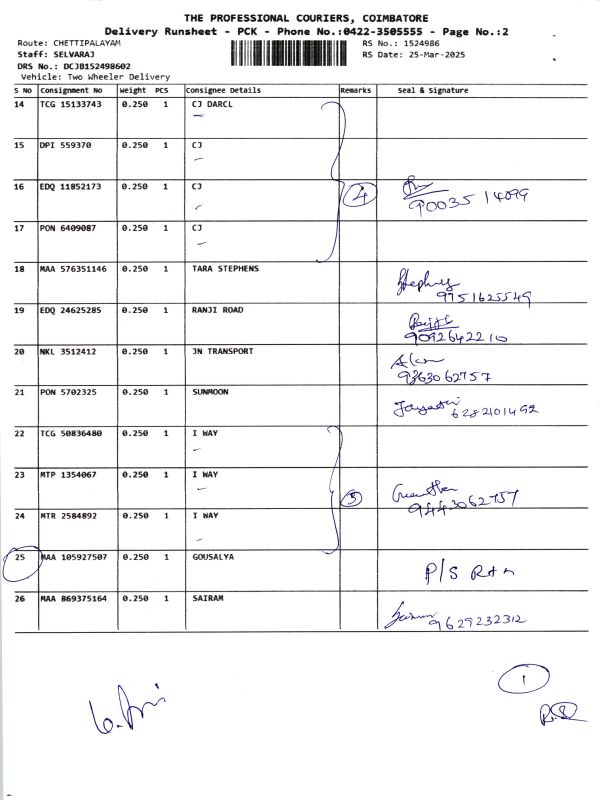 THE PROFESSIONAL COURIERS, COIMBATORE
Delivery Runsheet - PCK - Phone No.:0422-3505555 - Page No.:2
Route: CHETTIPALAYAM RS No.: 1524986
Staff: SELVARAJ RS Date: 25-Mar-2025
DRS No.: DCJ8152498602
Vehicle: Two Wheeler Delivery
S No Consignment No Weight PCS Consignee Details Remarks Seal & Signature
14 TCG 15133743 0.250 1 CJ DARCL
15 DPI 559370 0.250 1 CJ
16 EDQ 11852173 0.250 1 CJ 4
90035 14099
17 PON 6409087 0.250 1 CJ
18 MAA 576351146 0.250 1 TARA STEPHENS
Stephny
9751625549
19 EDQ 24625285 0.250 1 RANJI ROAD
9092642210
20 NKL 3512412 0.250 1 JN TRANSPORT
9363062757
21 PON 5702325 0.250 1 SUNMOON
6282101492
22 TCG 50836480 0.250 1 I WAY
23 MTP 1354067 0.250 1 I WAY 3
9443062757
24 MTR 2584892 0.250 1 I WAY
25 MAA 105927507 0.250 1 GOUSALYA
P/S
26 MAA 869375164 0.250 1 SAIRAM
9629232312
1